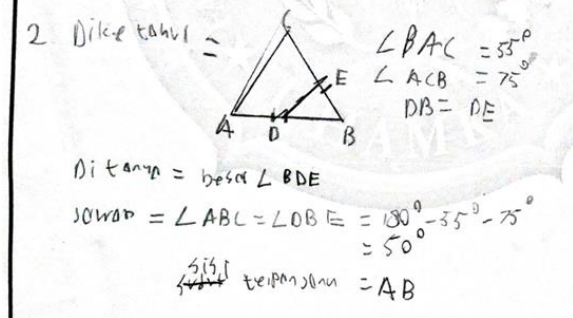 2 Diketahui =
C
E
A D B
∠BAC = 55°
∠ACB = 75°
DB = DE
Ditanya = besar ∠BDE
Jawab = ∠ABC = ∠DBE = 180° - 55° - 75°
= 50°
sisi terpanjang = AB